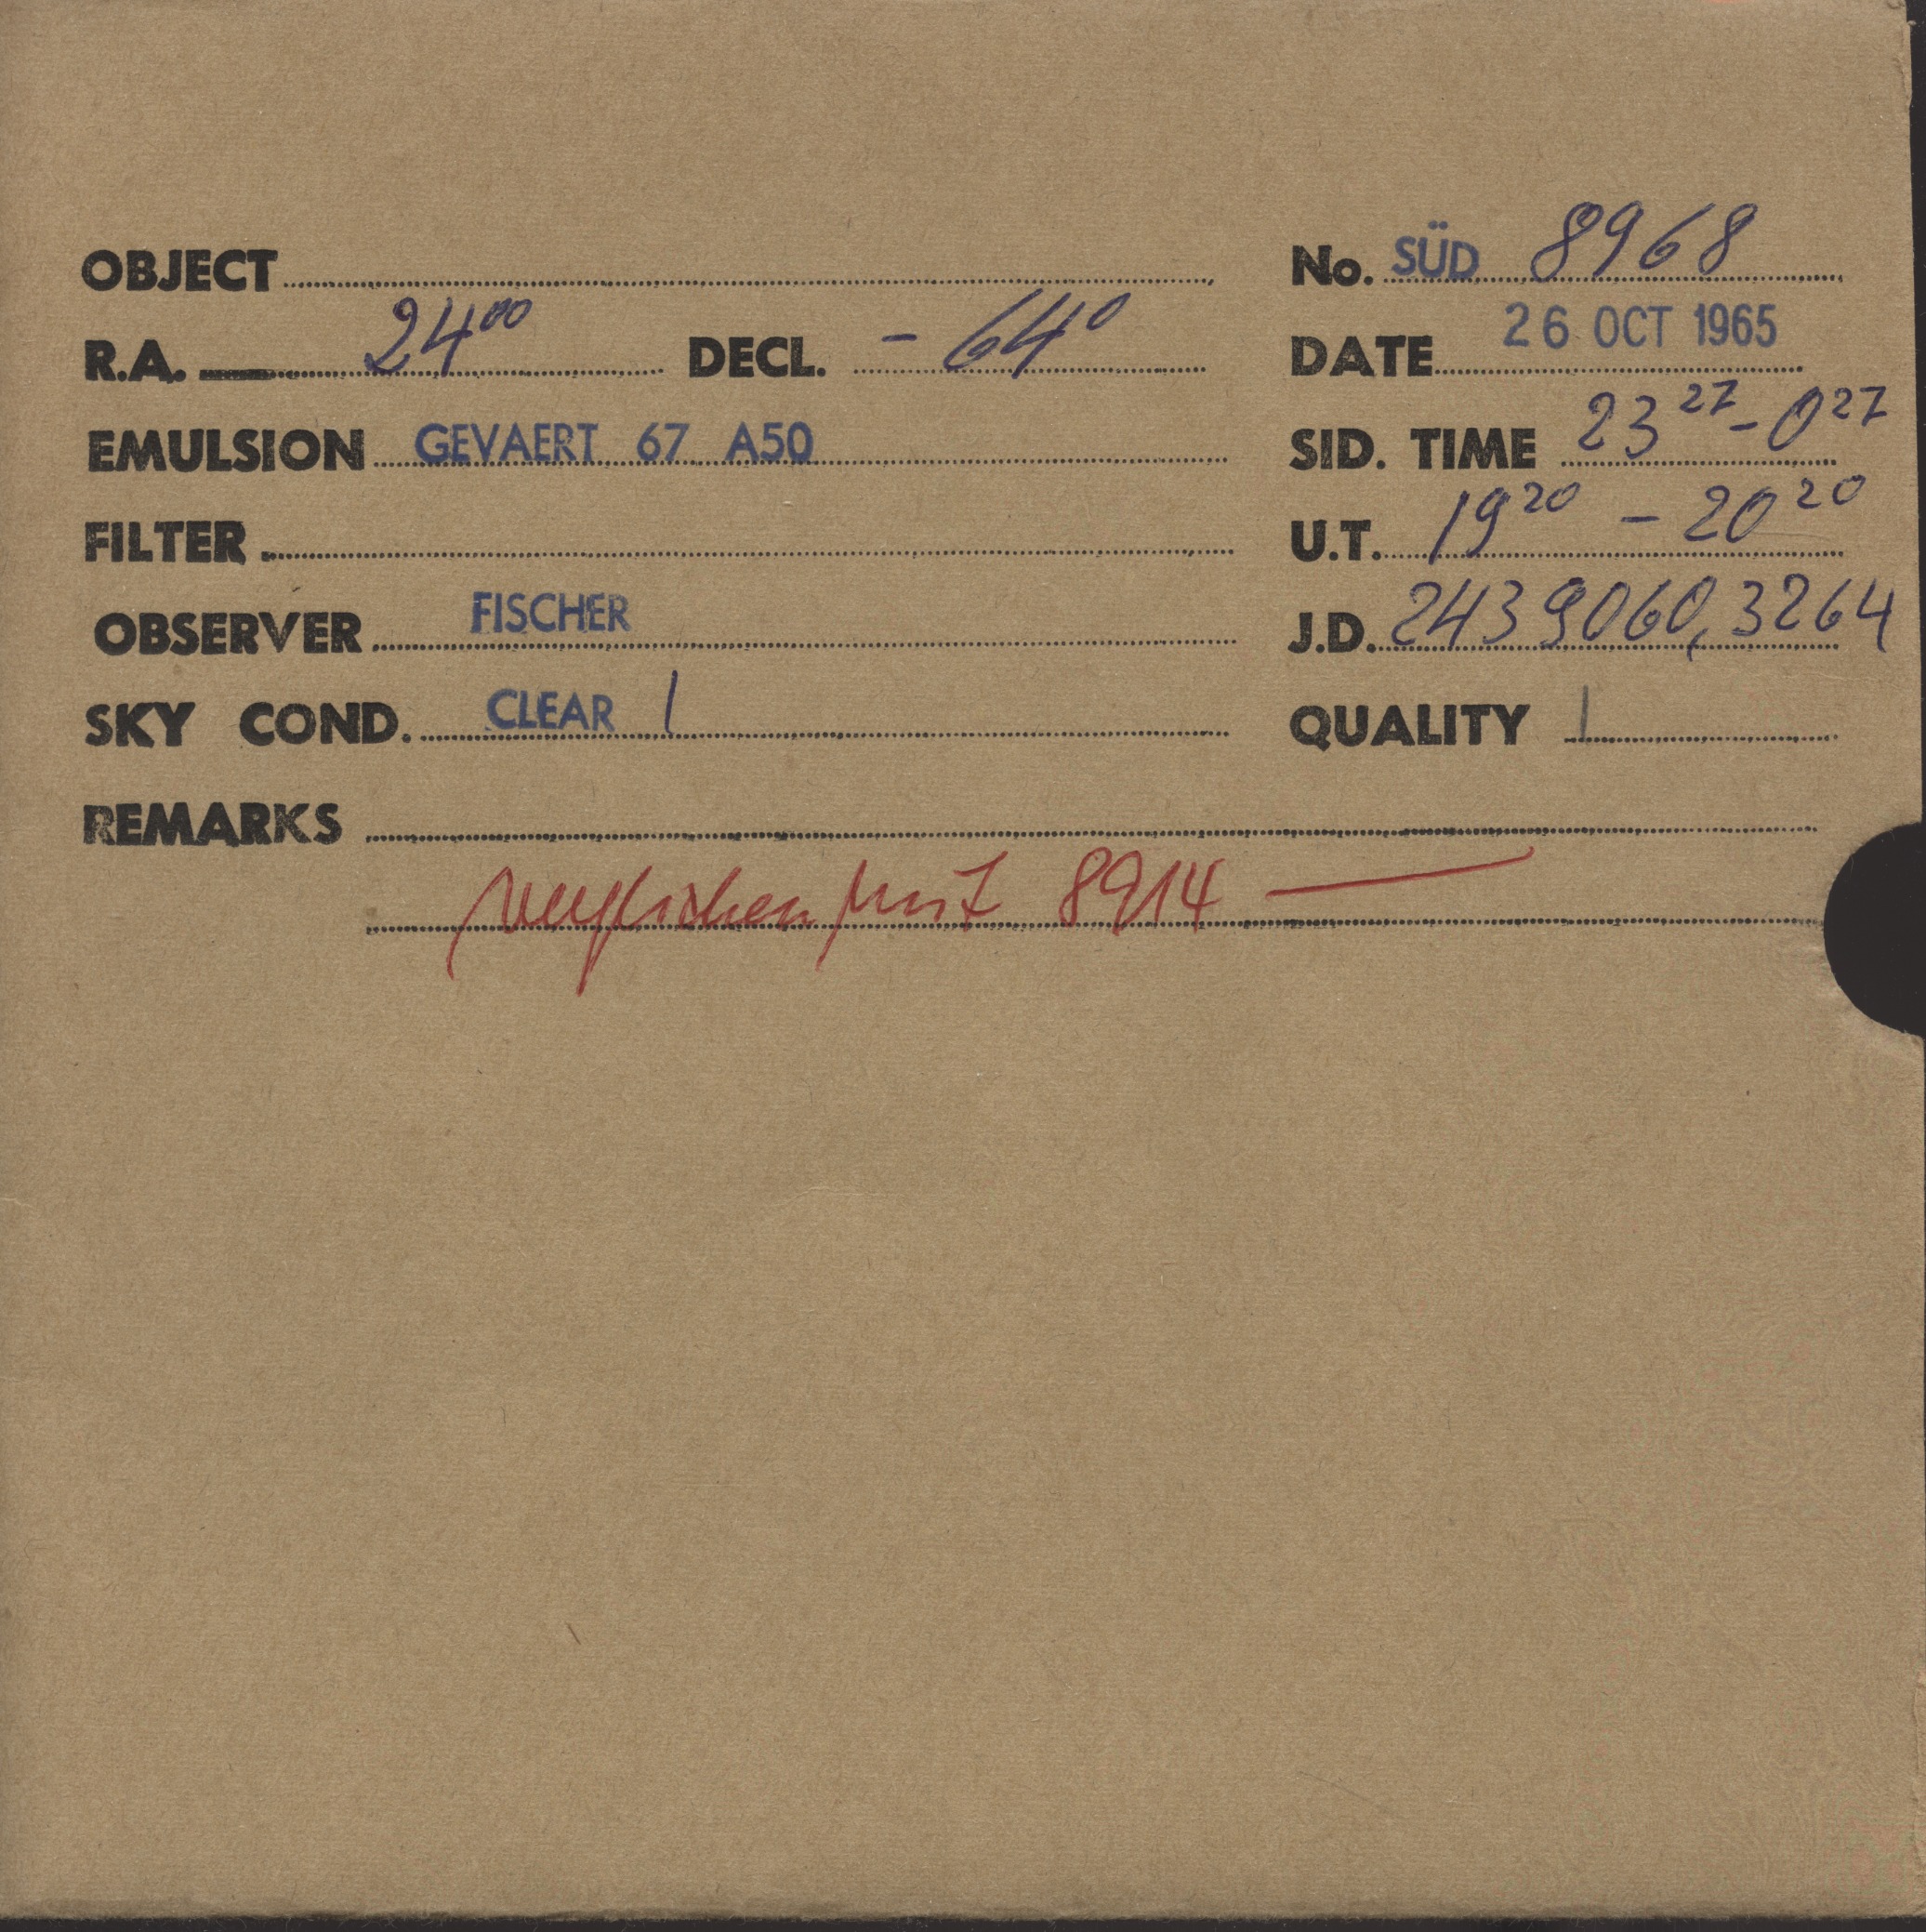 OBJECT No. SÜD 8968
R.A. 24⁰⁰ DECL. - 64° DATE 26 OCT 1965
EMULSION GEVAERT 67 A50 SID. TIME 23²⁷ - 0²⁷
FILTER U.T. 19²⁰ - 20²⁰
OBSERVER FISCHER J.D. 2439060,3264
SKY COND. CLEAR 1 QUALITY 1
REMARKS
verglichen mit 8914 —